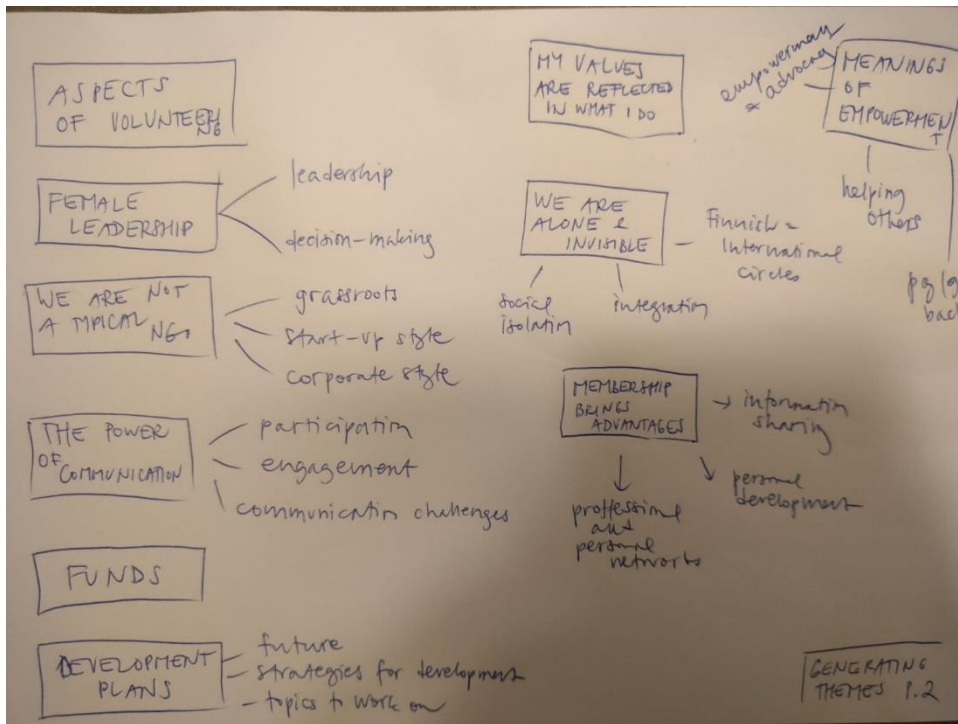 ASPECTS
OF VOLUNTEERI
NG
FEMALE
LEADERSHIP
leadership
decision-making
WE ARE NOT
A TYPICAL NGO
grassroots
start-up style
corporate style
THE POWER
OF COMMUNICATION
participation
engagement
communication challenges
FUNDS
DEVELOPMENT
PLANS
future
strategies for development
topics to work on
MY VALUES
ARE REFLECTED
IN WHAT I DO
WE ARE
ALONE &
INVISIBLE
Finnish &
International
circles
social
isolation
integration
MEMBERSHIP
BRINGS
ADVANTAGES
information
sharing
personal
development
proffessional
and
personal
networks
MEANINGS
OF
EMPOWERMEN
T
&
advocacy
helping
others
GENERATING
THEMES 1.2